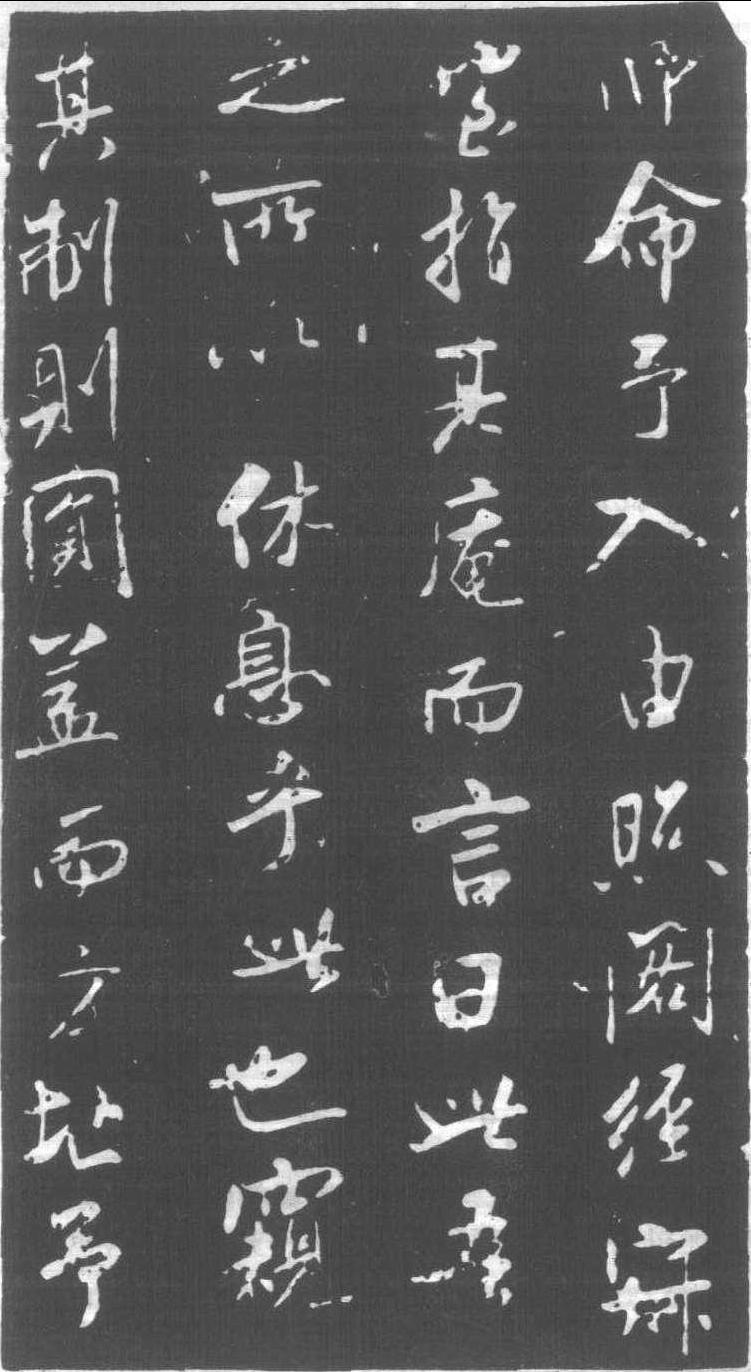 師命予入由照閣經寂
室指其庵而言曰此吾
之所以休息乎此也窺
其制則圓蓋而方址予